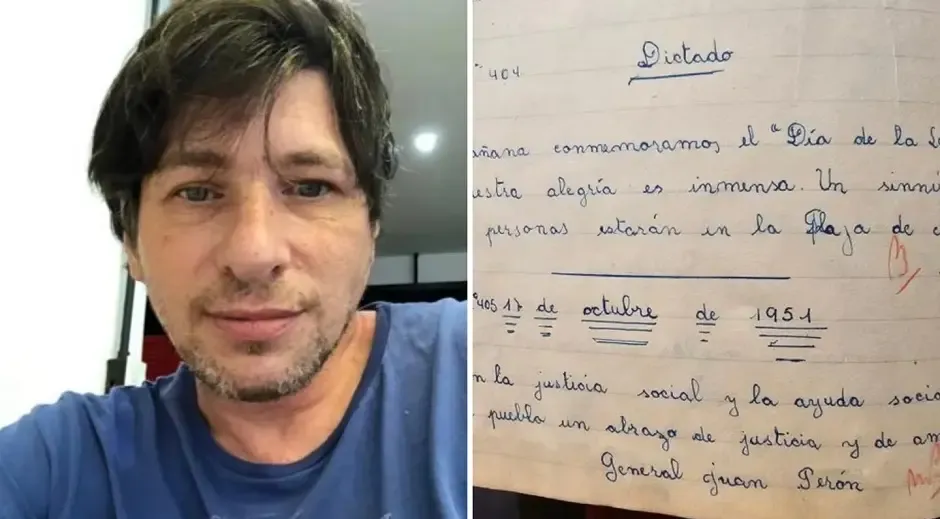 Dictado
404
añana conmemoramos el "Día de la
estra alegría es inmensa. Un sinni
personas estarán en la Plaza de
405 17 de octubre de 1951
n la justicia social y la ayuda socia
puebla un abrazo de justicia y de am
General Juan Perón